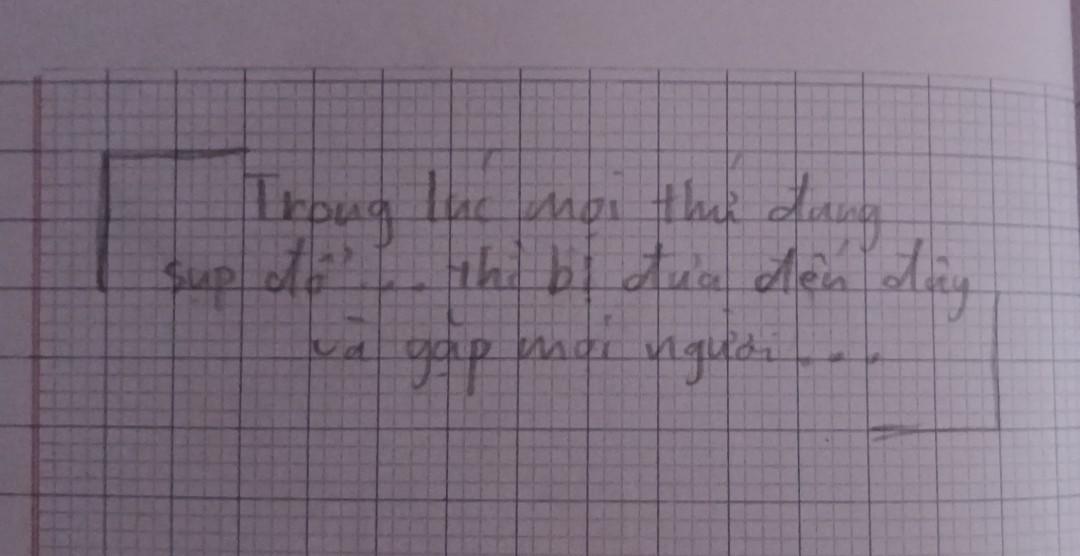 Trong lúc mọi thứ đang
sụp đổ ... thì bị đưa đến đây
và gặp mọi người ...